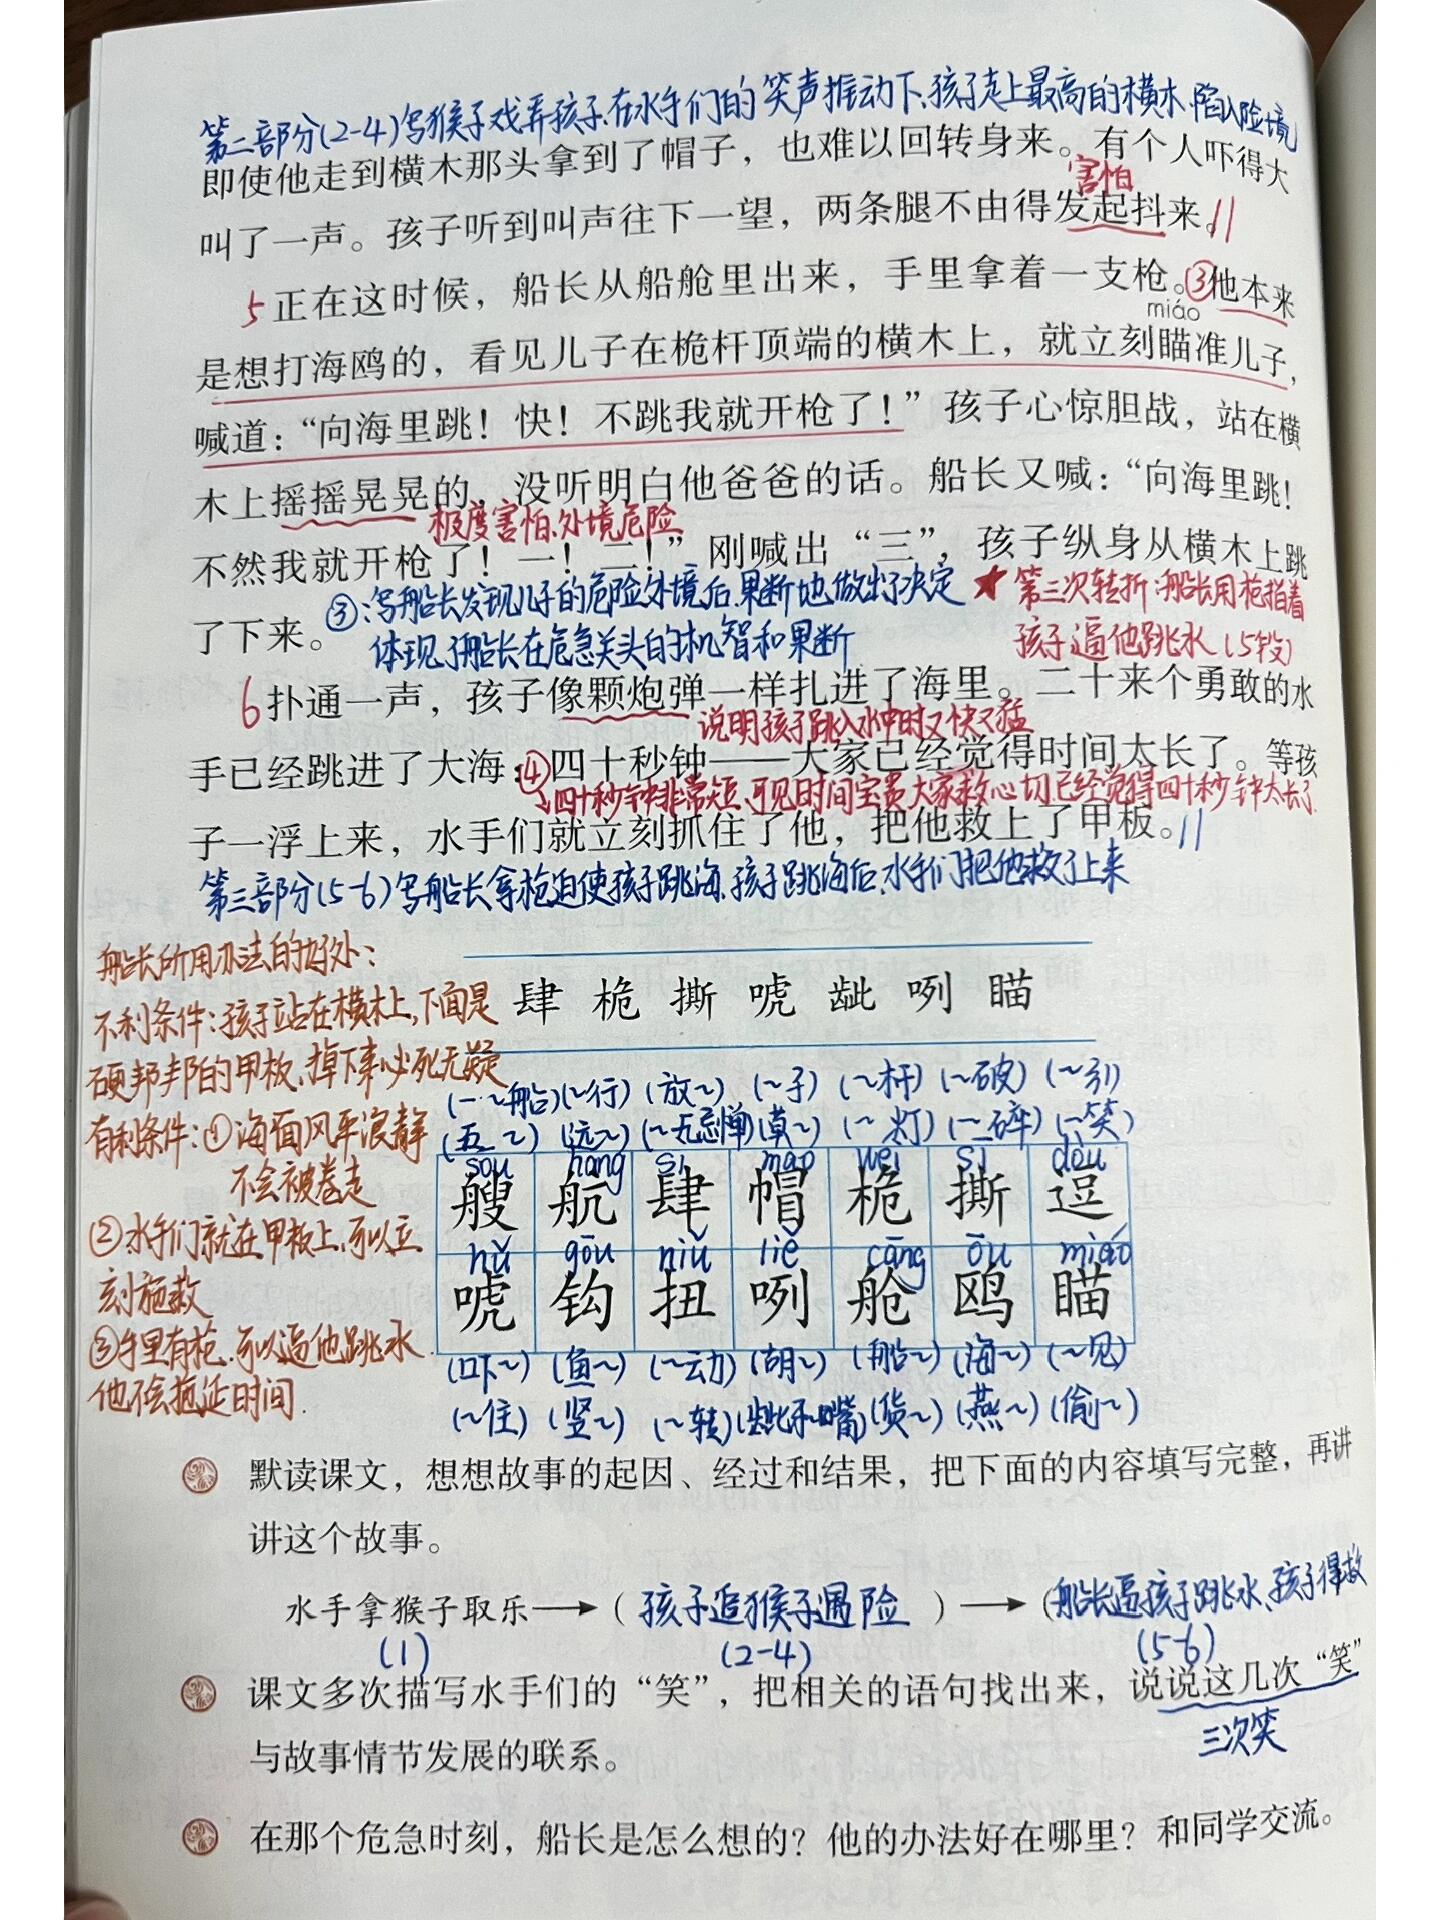 第二部分(2-4)写猴子戏弄孩子,在水手们的笑声推动下,孩子走上最高的横木,陷入险境
即使他走到横木那头拿到了帽子，也难以回转身来。有个人吓得大
害怕
叫了一声。孩子听到叫声往下一望，两条腿不由得发起抖来。//
5 正在这时候，船长从船舱里出来，手里拿着一支枪。③他本来
miáo
是想打海鸥的，看见儿子在桅杆顶端的横木上，就立刻瞄准儿子，
喊道：“向海里跳！快！不跳我就开枪了！”孩子心惊胆战，站在横
木上摇摇晃晃的，没听明白他爸爸的话。船长又喊：“向海里跳！
极度害怕、处境危险
不然我就开枪了！一！二！”刚喊出“三”，孩子纵身从横木上跳
③:写船长发现儿子的危险处境后,果断地做出了决定
★第三次转折:船长用枪指着
了下来。
体现了船长在危急关头的机智和果断
孩子逼他跳水(5段)
6 扑通一声，孩子像颗炮弹一样扎进了海里。二十来个勇敢的水
说明孩子跳入水中时又快又猛
手已经跳进了大海：④四十秒钟——大家已经觉得时间太长了。等孩
↘四十秒钟非常短,可见时间宝贵,大家救心切,已经觉得四十秒钟太长了.
子一浮上来，水手们就立刻抓住了他，把他救上了甲板。//
第三部分(5-6)写船长拿枪迫使孩子跳海,孩子跳海后,水手们把他救了上来
船长所用办法的好处：
不利条件:孩子站在横木上,下面是
硬邦邦的甲板,掉下来必死无疑
有利条件:①海面风平浪静
不会被卷走
②水手们就在甲板上,可以立
刻施救
③手里有枪,可以逼他跳水
他不会拖延时间.
肆 桅 撕 唬 龇 咧 瞄
(一~船)(~行)(放~)(~子)(~杆)(~破)(~引)
(五~)(远~)(~无忌惮)(草~)(~灯)(~碎)(~笑)
sōu háng sì mào wéi sī dòu
艘 航 肆 帽 桅 撕 逗
hǔ gōu niǔ liě cāng ōu miáo
唬 钩 扭 咧 舱 鸥 瞄
(吓~)(鱼~)(~动)(胡~)(船~)(海~)(~见)
(~住)(竖~)(~转)(龇牙~嘴)(货~)(燕~)(偷~)
默读课文，想想故事的起因、经过和结果，把下面的内容填写完整，再讲
讲这个故事。
水手拿猴子取乐→（孩子追猴子遇险）→（船长逼孩子跳水、孩子得救
(1) (2-4) (5-6)
课文多次描写水手们的“笑”，把相关的语句找出来，说说这几次“笑”
三次笑
与故事情节发展的联系。
在那个危急时刻，船长是怎么想的？他的办法好在哪里？和同学交流。